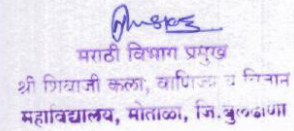 मराठी विभाग प्रमुख
श्री शिवाजी कला, वाणिज्य व विज्ञान
महाविद्यालय, मोताळा, जि.बुलढाणा